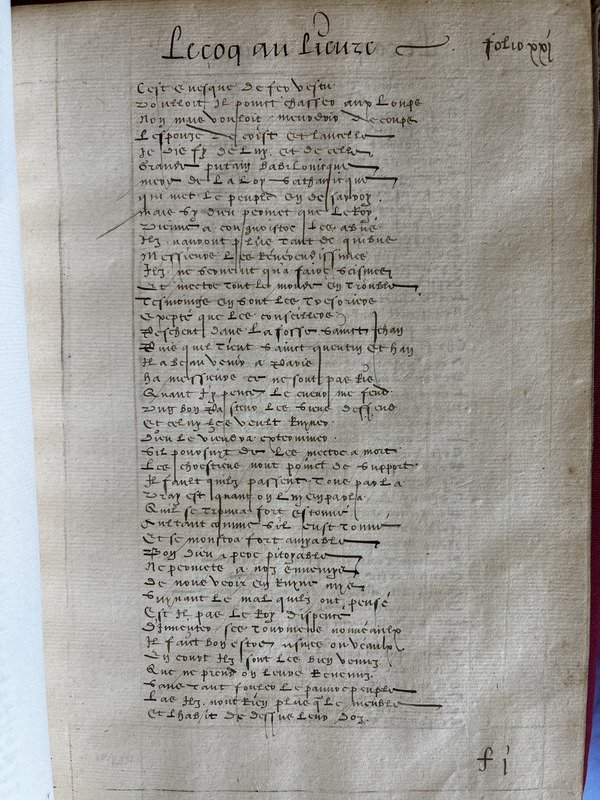 Lecoq au lieure
folio xxj
Cest Euesque de feo vestu
Vouloit Il poinct chasser aux Loups
Non mais vouloit
Lespouze de crist et lancelle
Je dis sy de Luy et de celle
Grande putain babilonicque
mere de La Loy sathanicque
qui met le peuple en de sarroy
mais sy dieu permet que LeRoy
Vienne a congnoistre Les abus
Ilz nauront plus tant de quibus
Messieurs Les Reuerendissimes
Ilz ne seruent qua faire scismes
Et mectre tout Le monde en trouble
Tesmoings en sont Les tresoriers
Excepté que Les conseillers
Peschent dans La fosse sainct Jehan
Puis quil tient sainct quentin et han
Il a beau venir a Paris
ha messieurs ce ne sont pas Ris
Quant Jy pense Le cueur me fend
Ung bon Pasteur Les siens deffend
Et celuy Les veult Ruyner
Dieu Le viendra exterminer
Sil poursuit de Les mectre a mort
Les chrestiens nont poinct de support
Il fault quilz passent tous par La
Vray est quant on Luy en parla
Quil se trouua fort estonné
Aultant comme sil eust tonné
Et se monstra fort amyable
Bon dieu apere pitoyable
Ne permets a noz ennemys
De nous veoir en Ruyne mys
Suyuant Le mal quilz ont pensé
Est Il pas Le Roy dispencé
Dinuenter ses tourmens nouueaulx
Il fault bon estre asnes ou veaulx
En court Ilz sont Les bien venuz
Que ne prend on Leurs Reuenuz
Sans tant fouler Le pauure peuple
Las Ilz nont Rien plus que Le meuble
Et Lhabit de dessus Leur doz
f j